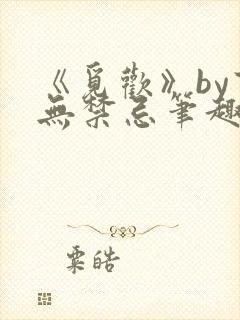 《覓歡》by
無禁忌筆趣
粟皓